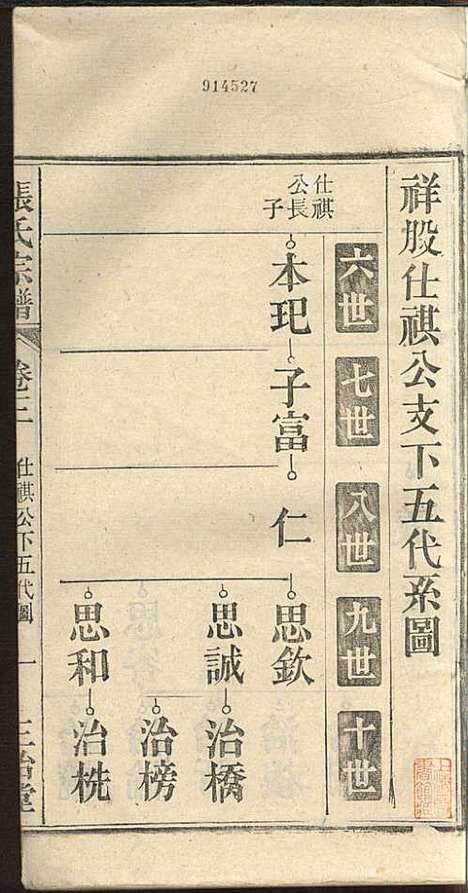 914527
祥股仕祺公支下五代系圖
六世
七世
八世
九世
十世
仕祺
公長
子
本玘
子富
仁
思欽
思誠
治橋
治榜
思和
治桄
張氏宗譜
卷二
仕祺公下五代圖
一